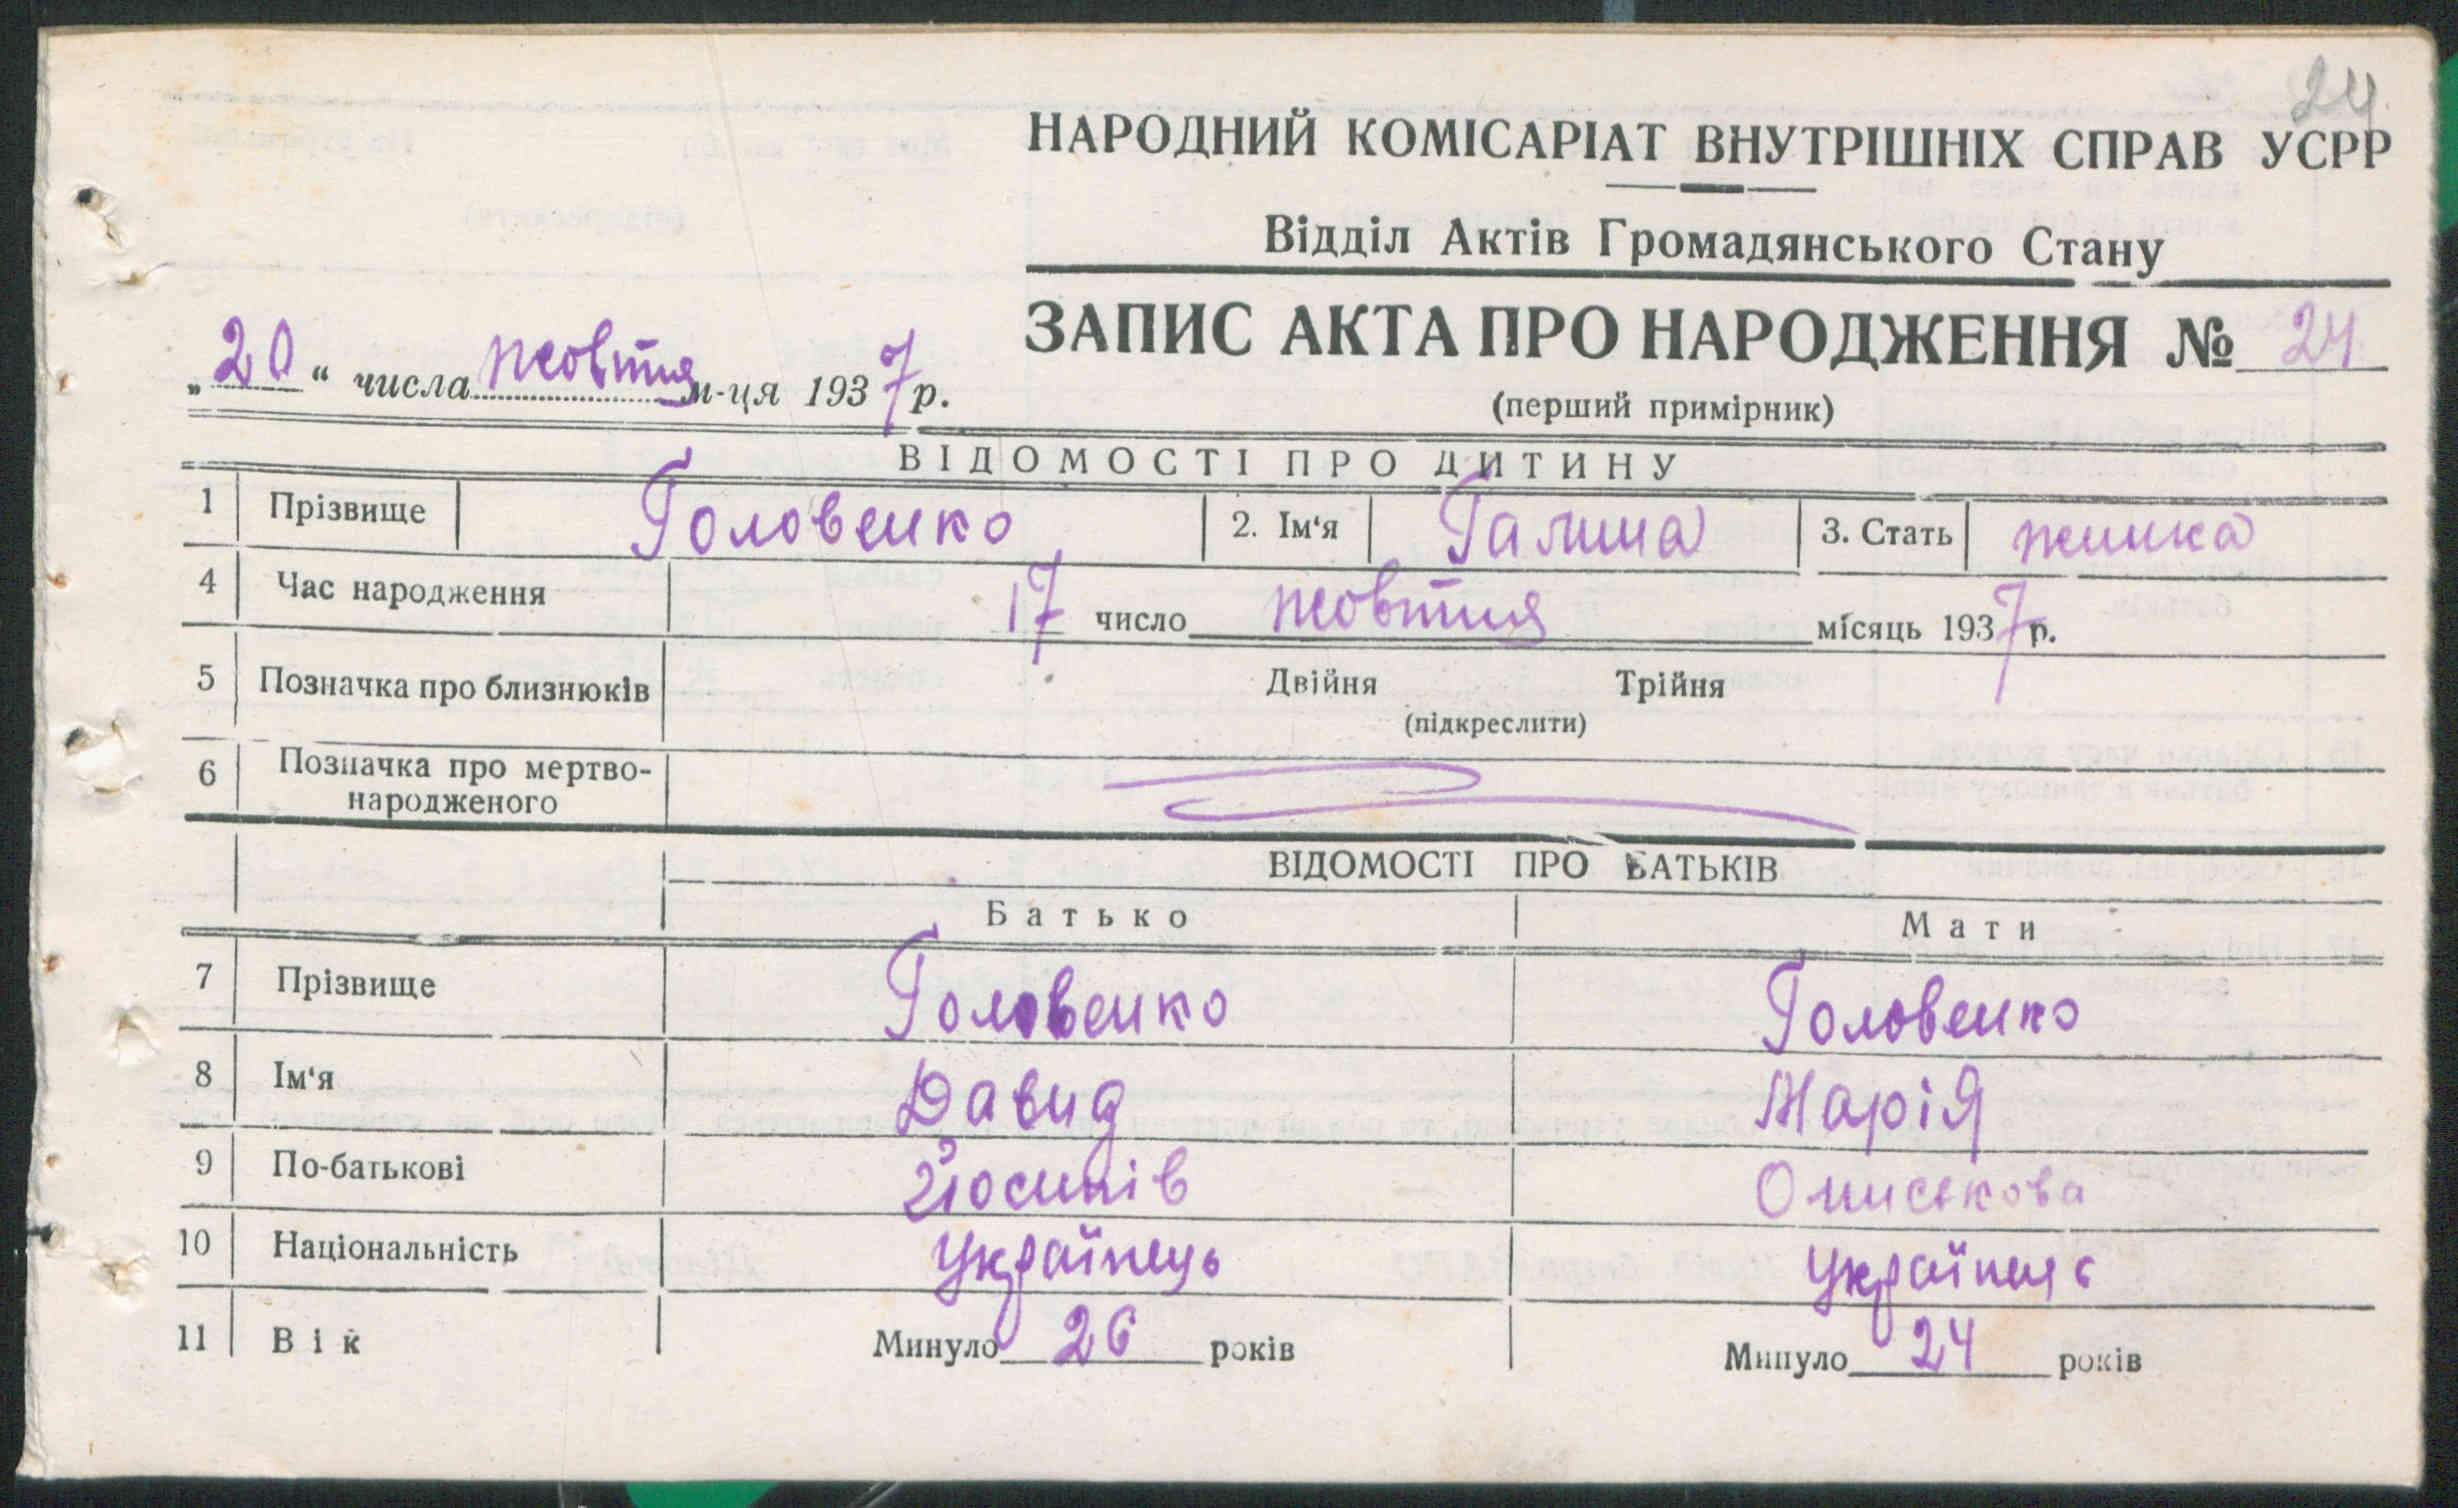 24
НАРОДНИЙ КОМІСАРІАТ ВНУТРІШНІХ СПРАВ УСРР
Відділ Актів Громадянського Стану
ЗАПИС АКТА ПРО НАРОДЖЕННЯ № 24
„20“ числа жовтня м-ця 1937 р.
(перший примірник)
ВІДОМОСТІ ПРО ДИТИНУ
1 Прізвище Головенко 2. Ім‘я Галина 3. Стать жинка
4 Час народження 17 число жовтня місяць 1937 р.
5 Позначка про близнюків Двійня Трійня
(підкреслити)
6 Позначка про мертво-
народженого
ВІДОМОСТІ ПРО БАТЬКІВ
Батько Мати
7 Прізвище Головенко Головенко
8 Ім‘я Давид Марія
9 По-батькові Йосипів Ониськова
10 Національність Українець Українець
11 Вік Минуло 26 років Минуло 24 років